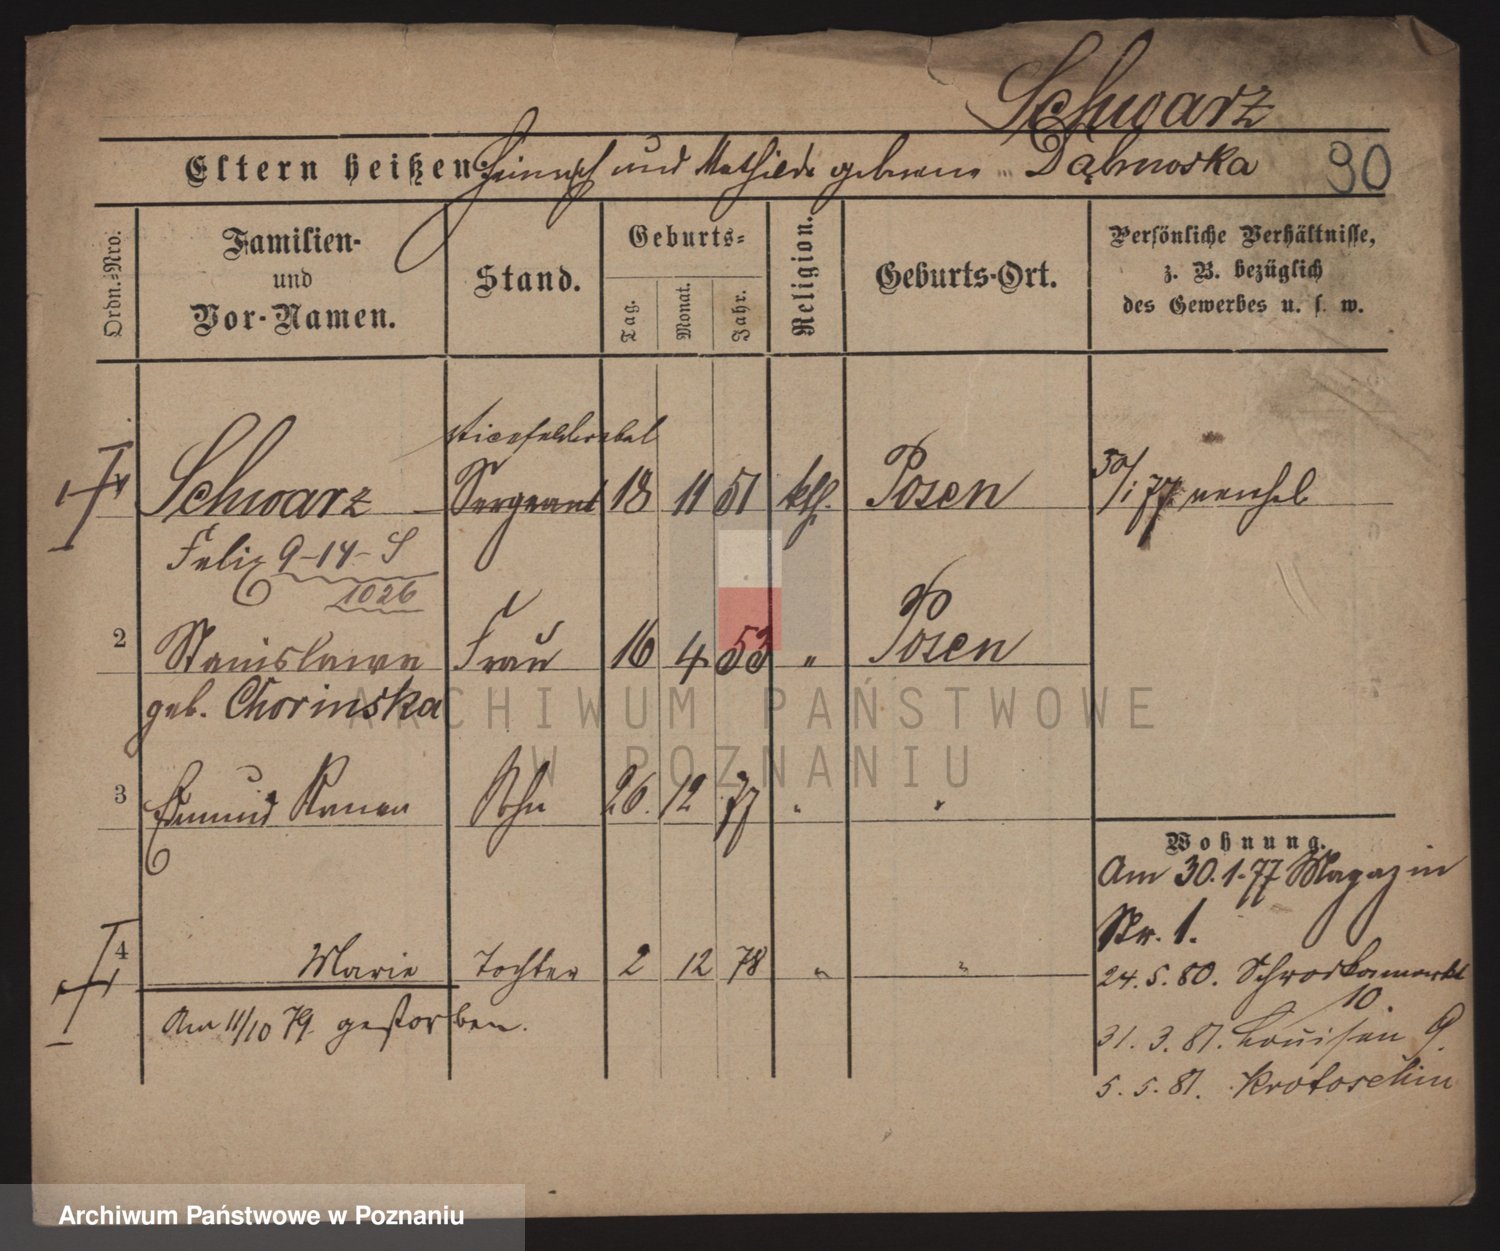 Schwarz
Eltern heißen: Heinrich und Mathilde geborene Dąbrowska 90
Ordn.-Nro.
Familien-
und
Vor-Namen.
Stand.
Geburts-
Tag.
Monat.
Jahr.
Religion.
Geburts-Ort.
Persönliche Verhältnisse,
z. B. bezüglich
des Gewerbes u. s. w.
Vicefeldwebel
Schwarz Sergeant 18 11 51 kth. Posen 30/1 77
Felix 9-14-S
1026
2 Stanislawa Frau 16 4 53 " Posen
geb. Chorinska
3 Edmund Sohn 26. 12 77 " "
4 Marie Tochter 2 12 78 " "
Am 11/10 79. gestorben.
Wohnung.
Am 30.1.77 Magazin
Str. 1.
24. 5. 80. Schrodkamarkt
10.
31. 3. 81. Louisen 9.
5. 5. 81. Krotoschin
ARCHIWUM PAŃSTWOWE
W POZNANIU
Archiwum Państwowe w Poznaniu